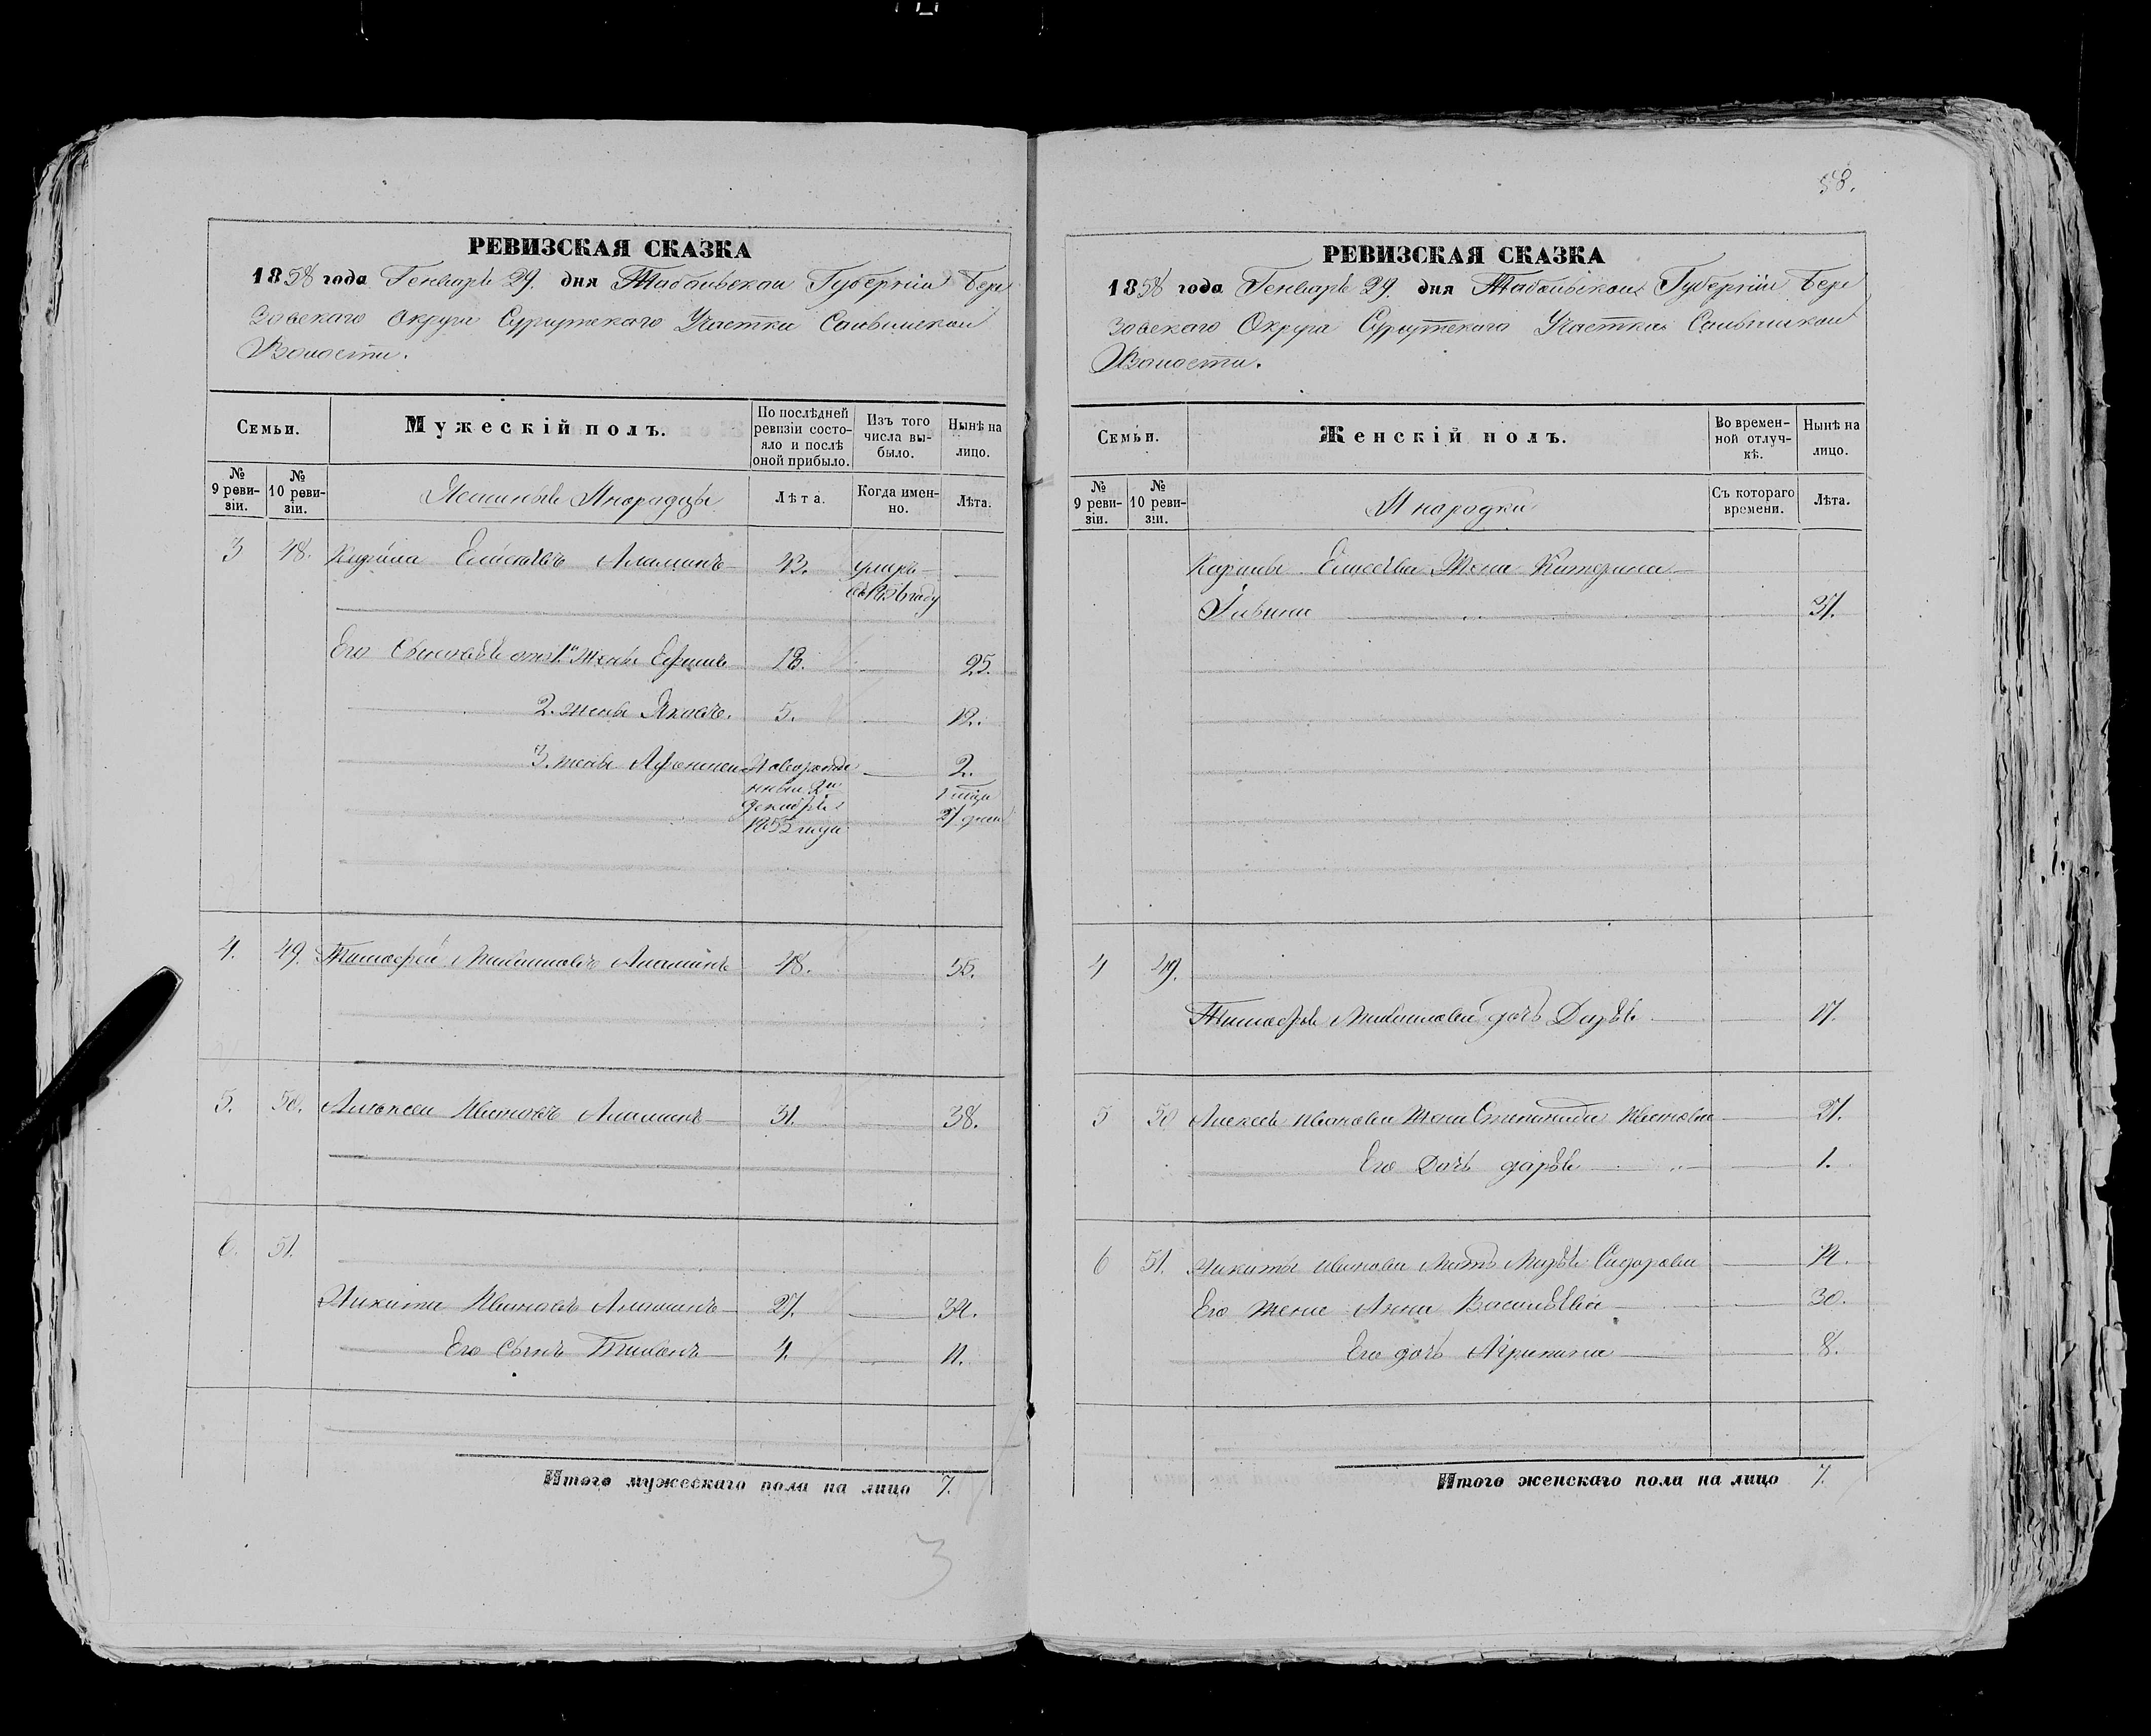 58.
РЕВИЗСКАЯ СКАЗКА
1858 года Генваря 29. дня Тобольской Губерніи Бере
зовскаго Округа Сургутскаго Участка Салымской
Волости.
Семьи.
Мужескій полъ.
По послѣдней ревизіи состояло и послѣ оной прибыло.
Изъ того числа выбыло.
Нынѣ на лицо.
№ 9 ревизіи.
№ 10 ревизіи.
Ясашные Инородцы
Лѣта.
Когда именно.
Лѣта.
3 48. Елисѣевъ 43. умеръ
въ 1856 году
Его Сыновья отъ 1й Жены Ефимъ 18. 25.
2. жены Яковъ. 5. 12.
3. жены Новорожде 2.
нный 2го 1 мѣся
декабря 27 дней
1855 года
4. 49. Тимофей 48. 55.
5. 50. Алексей Ивановъ 31. 38.
6. 51.
Никита Ивановъ 27. 34.
Его Сынъ Тихонъ 4. 11.
Итого мужескаго пола на лицо 7.
3
РЕВИЗСКАЯ СКАЗКА
1858 года Генваря 29. дня Тобольской Губерніи Бере
зовскаго Округа Сургутскаго Участка Салымской
Волости.
Семьи.
Женскій полъ.
Во временной отлучкѣ.
Нынѣ на лицо.
№ 9 ревизіи.
№ 10 ревизіи.
Инородки
Съ котораго времени.
Лѣта.
Елисеева Жена Катерина
37.
4 49.
Тимофея дочь Дарья 17.
5 50 Алексея Иванова Жена Степанида Ивановна 27.
Его Дочь дарья 1.
6 51. Никиты Иванова Мать Марья Сидорова
Его Жена Анна Васильева 30.
Его дочь Агрипина 8.
Итого женскаго пола на лицо 7.